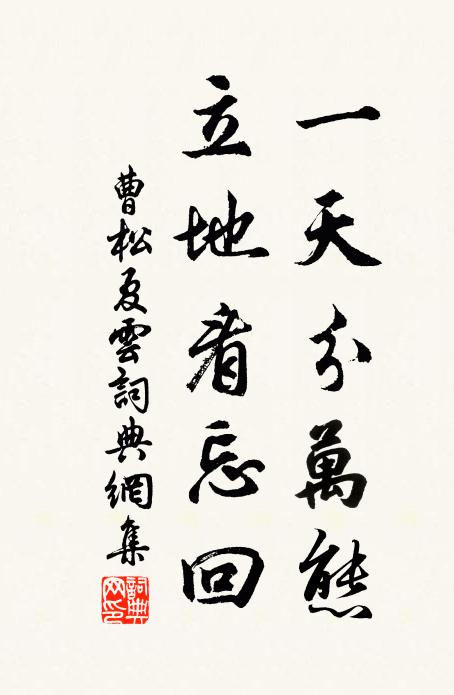 一天分萬態
立地看忘回
曹松夏雲詞典網集
詞典网印